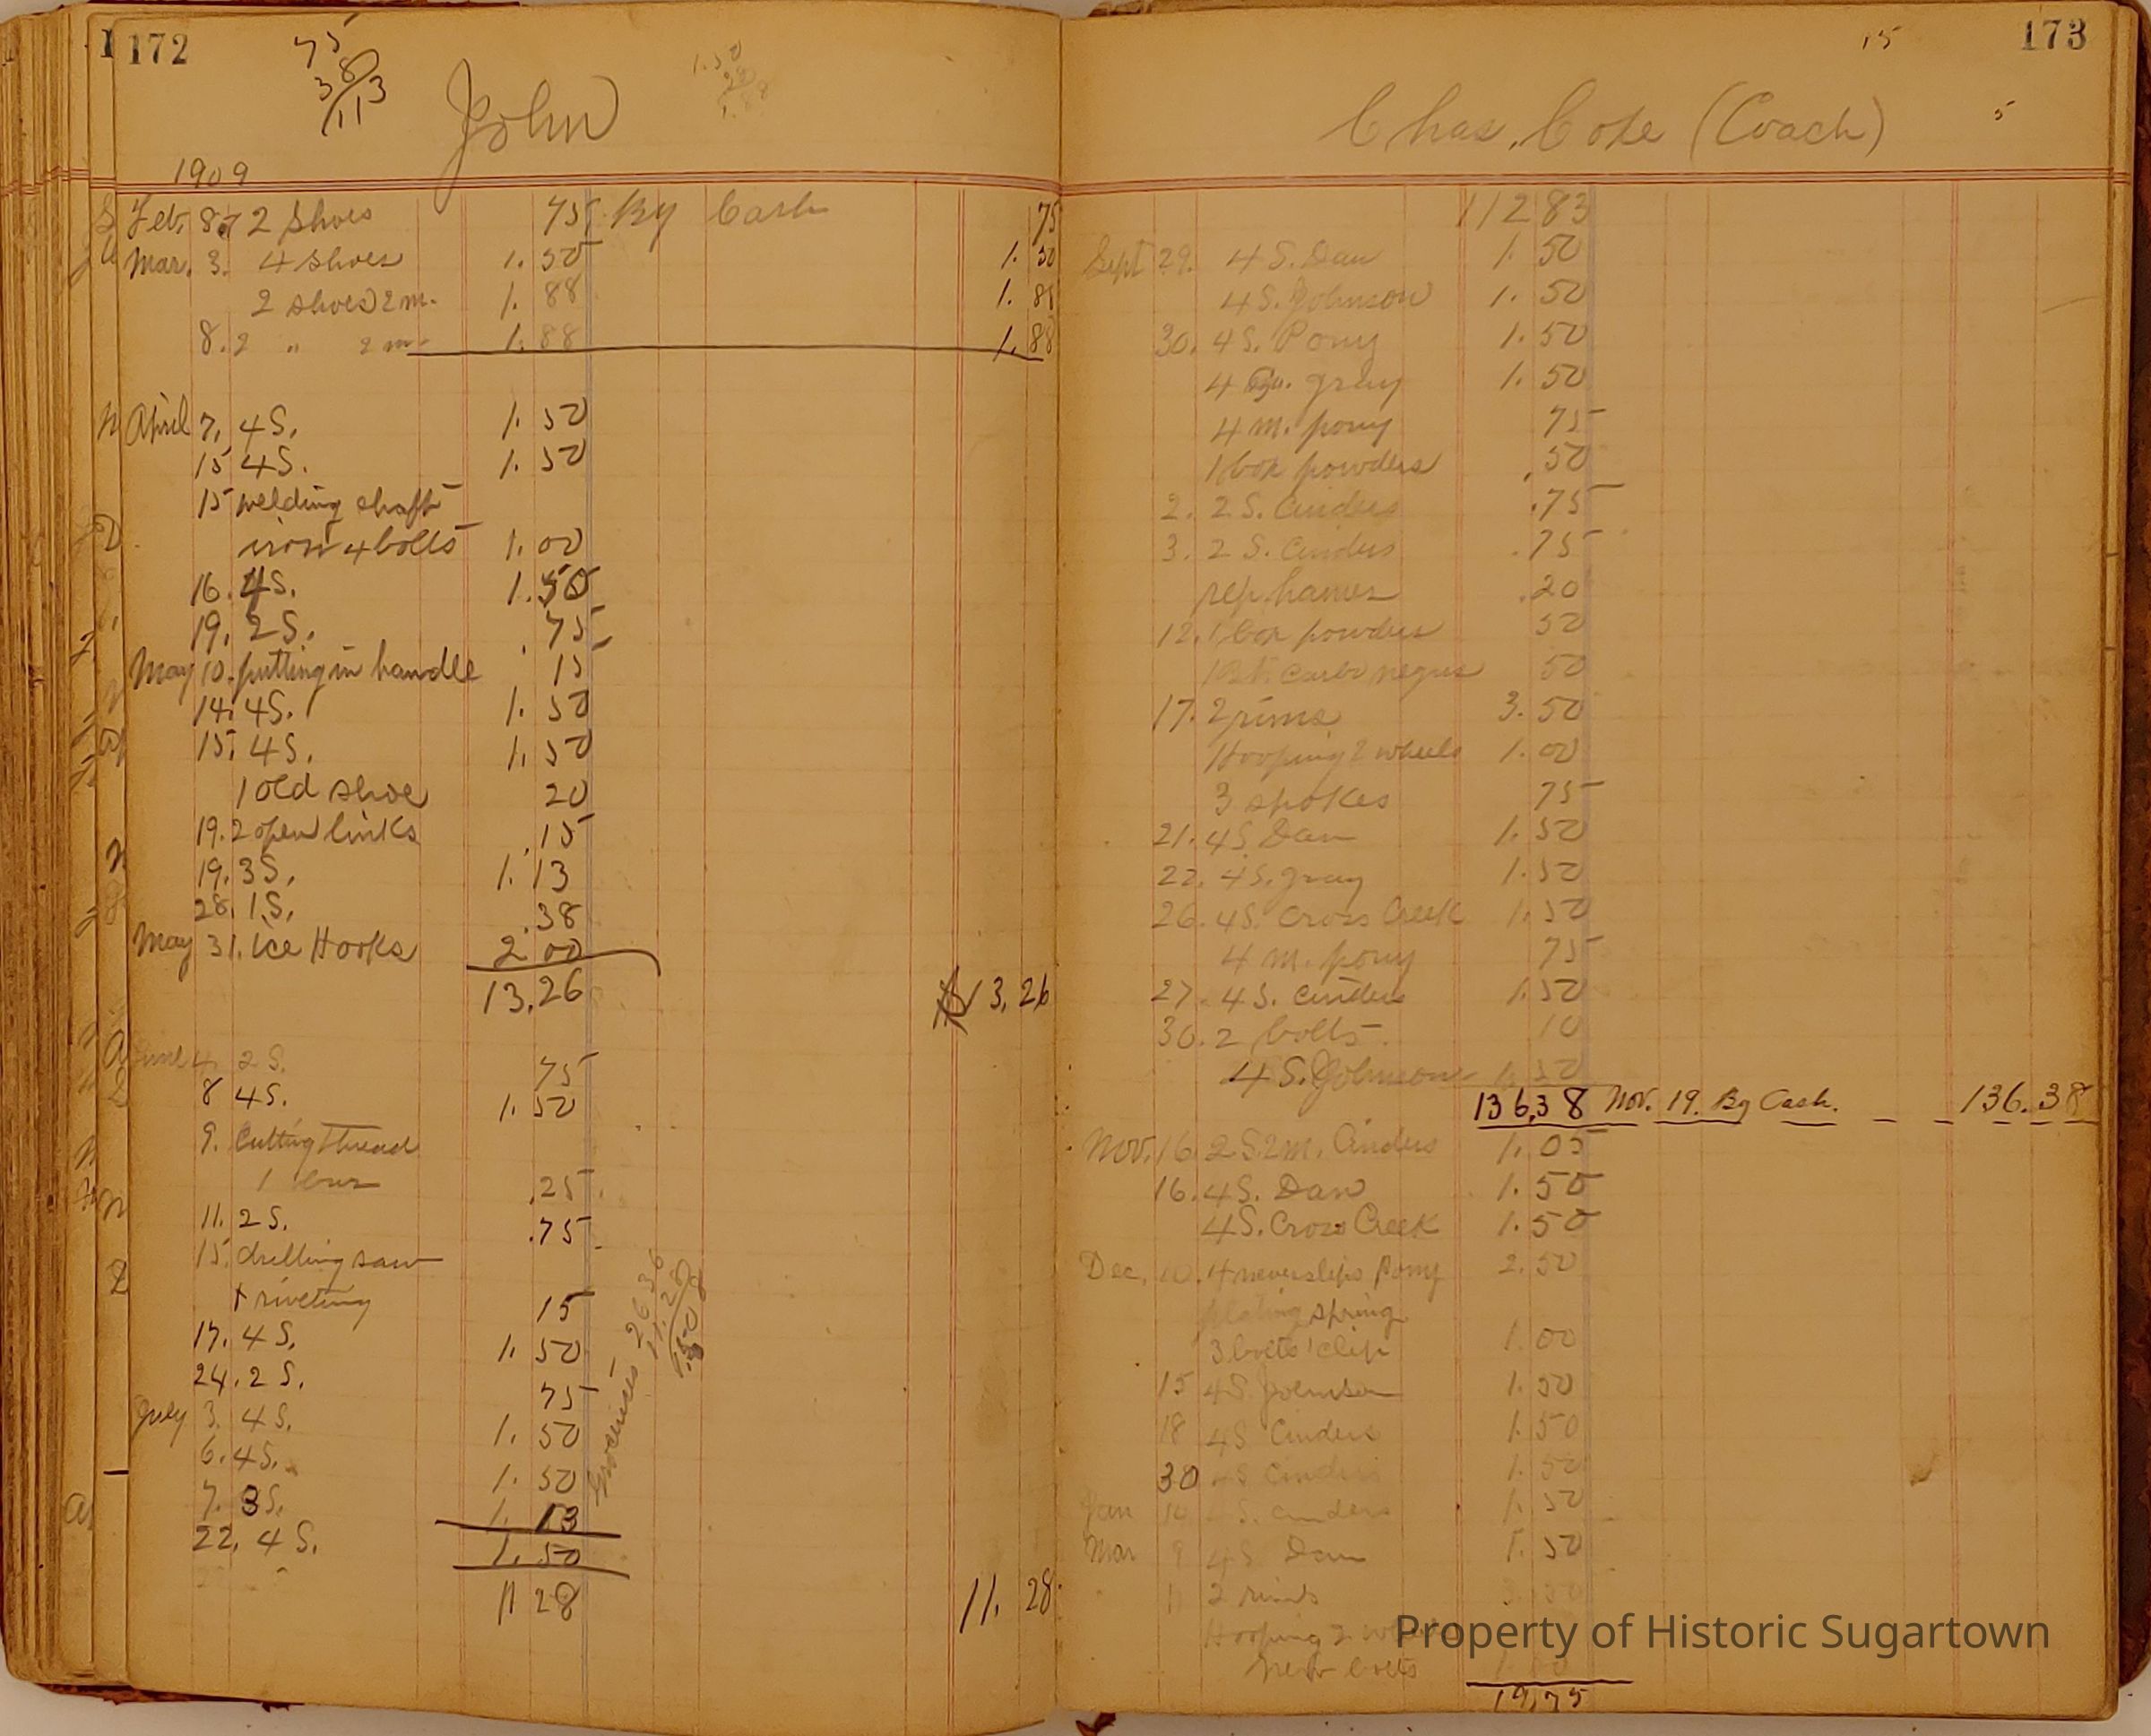 172
75
38
113
1.50
John
1909
Feb. 8. 2 Shoes 75 By Cash 75
Mar. 3. 4 shoes 1. 50 1. 50
2 shoes 2 m. 1. 88 1. 88
8. 2 " 2 m. 1. 88 1. 88
April 7. 4 S. 1. 50
15 4 S. 1. 50
15 welding shaft
iron 4 bolts 1. 00
16. 4 S. 1. 50
19. 2 S. .75
May 10. putting in handle 15
14. 4 S. 1. 50
15. 4 S. 1. 50
1 old shoe 20
19. 2 open links .15
19. 3 S. 1. 13
28. 1 S. .38
May 31. Ice Hooks 2 00
13.26 13.26
June 4. 2 S. 75
8 4 S. 1. 50
9. Cutting thread
1 .25
11. 2 S. .75
15. drilling saw
+ riveting 15
17. 4 S. 1. 50
24. 2 S. 75
July 3. 4 S. 1. 50
6. 4 S. 1. 50
7. 3 S. 1. 13
22. 4 S. 1. 50
11 28 11. 28
Groceries 26 36
11.28
15.08
173
15
5
Chas. Cote (Coach)
112 83
Sept 29. 4 S. Dan 1. 50
4 S. Johnson 1. 50
30. 4 S. Pony 1. 50
4 gray 1. 50
4 m. pony 75
1 box powders .50
2. 2 S. Cinders .75
3. 2 S. Cinders .75
rep. hames .20
12. 1 box powders 50
Carbo negus 50
17. 2 rims 3. 50
Hooping 2 wheels 1. 00
3 spokes 75
21. 4 S. Dan 1. 50
22. 4 S. gray 1. 50
26. 4 S. Cross Creek 1. 50
4 m. pony 75
27. 4 S. Cinders 1. 50
30. 2 bolts. 10
4 S. Johnson 1. 50
136.38 Nov. 19. By Cash. 136.38
Nov. 16. 2 S. 2 m. Cinders 1. 05
16. 4 S. Dan 1. 50
4 S. Cross Creek 1. 50
Dec. 10. 4 neverslips Pony 2. 50
plating spring
3 bolts 1 clip 1. 00
15 4 S. Johnson 1. 50
18 4 S Cinders 1. 50
30 4 S Cinders 1. 50
Jan 4 S. Cinders 1. 50
Mar 9 4 S Dan 1. 50
11 2 rims 3.50
Hooping 2 wheels
new bolts 1.00
19.75
Property of Historic Sugartown